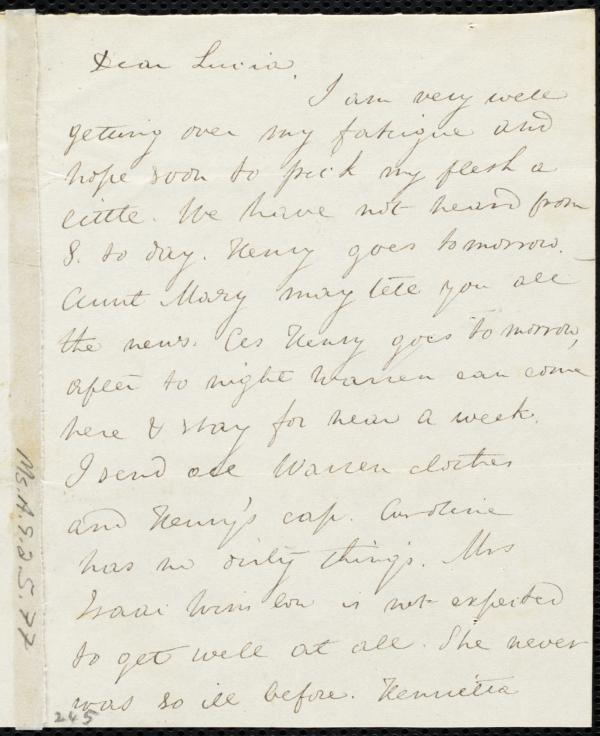 Dear Lucia,
I am very well
getting over my fatigue and
hope soon to pick my flesh a
little. We have not heard from
S. to day. Henry goes tomorrow.
Aunt Mary may tell you all
the news. As Henry goes tomorrow,
after to night Warren can come
here & stay for near a week.
I send all Warren clothes
and Henry's cap. Caroline
has no dirty things. Mrs
Isaac Winslow is not expected
to get well at all. She never
was so ill before. Henrietta
245
Ms.A.9.2.5.77